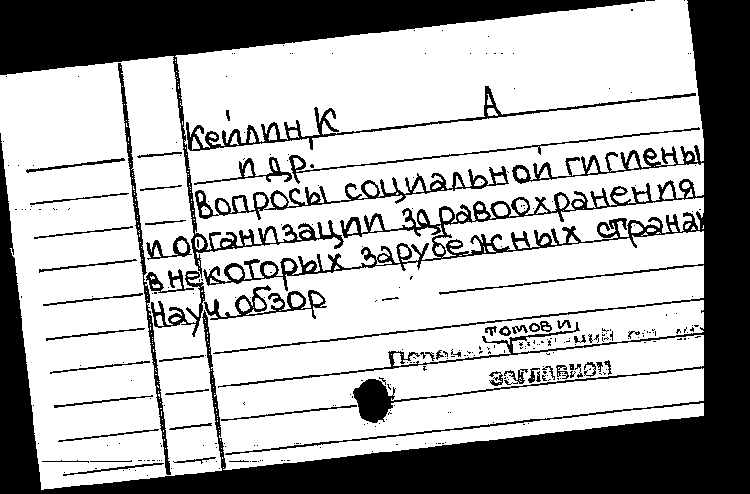 Кейлин, К А
и др.
Вопросы социальной гигиены
и организации здравоохранения
в некоторых зарубежных страна
Науч. обзор
томов и
заглавном